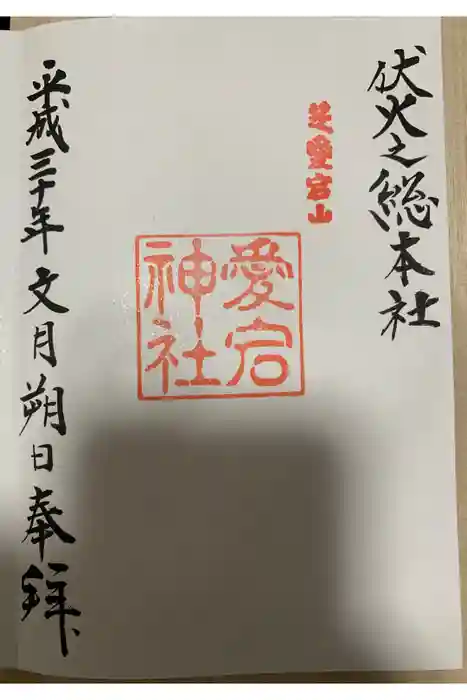 伏火之総本社
芝愛宕山
愛宕
神社
平成三十年文月朔日奉拝